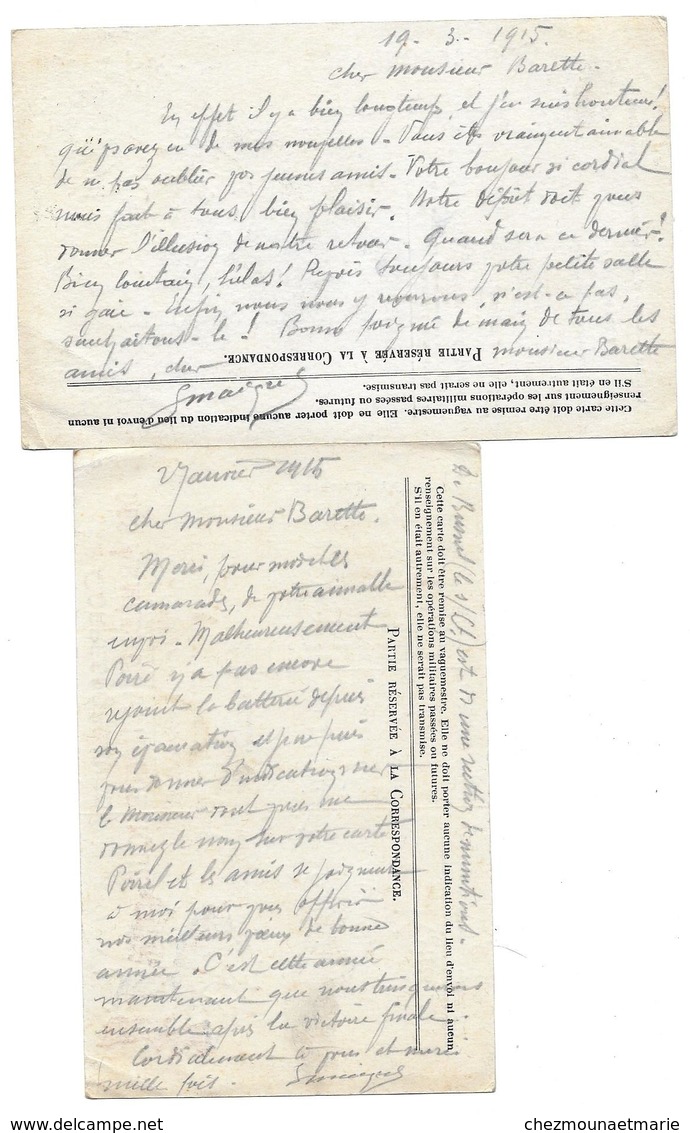 19. 3. 1915.
Cher Monsieur Barette.
En effet il y a bien longtemps, et j'en suis honteux!
de mes nouvelles. Vous êtes vraiment aimable
de ne pas oublier vos jeunes amis. Votre bonjour si cordial
nous fait à tous bien plaisir. Notre dépôt doit vous
donner l'illusion de notre retour. Quand sera ce dernier?
Bien lointain, hélas! Revois toujours votre petite salle
si gaie. Enfin, nous nous y reverrons, n'est-ce pas,
souhaitons-le! Bonne poignée de main de tous les
amis, cher monsieur Barette
PARTIE RÉSERVÉE À LA CORRESPONDANCE.
Cette carte doit être remise au vaguemestre. Elle ne doit porter aucune indication du lieu d'envoi ni aucun
renseignement sur les opérations militaires passées ou futures.
S'il en était autrement, elle ne serait pas transmise.
2 Janvier 1915
Cher Monsieur Barette.
Merci, pour moi et les
camarades, de votre aimable
envoi. Malheureusement
Poirel n'a pas encore
rejoint la batterie depuis
son évacuation et ne puis
vous donner d'indications sur
le Monsieur dont vous me
donnez le nom sur votre carte
Poirel et les amis se joignent
à moi pour vous offrir
nos meilleurs vœux de bonne
année. C'est cette année
maintenant que nous trinquerons
ensemble après la victoire finale.
Cordialement à vous et merci
mille fois.
PARTIE RÉSERVÉE À LA CORRESPONDANCE.
Cette carte doit être remise au vaguemestre. Elle ne doit porter aucune indication du lieu d'envoi ni aucun
renseignement sur les opérations militaires passées ou futures.
S'il en était autrement, elle ne serait pas transmise.
est à une section de munitions.
chezmounaetmarie.com